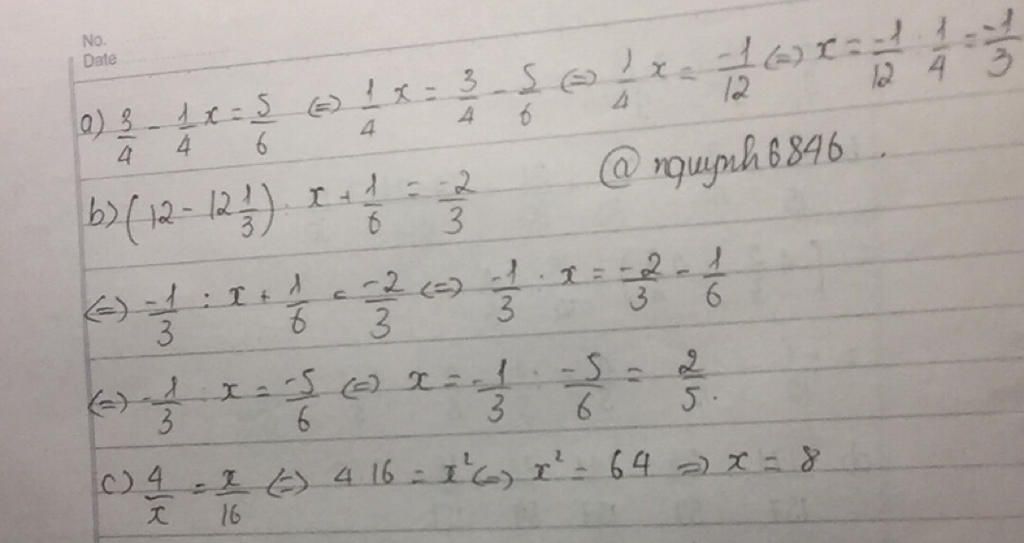 No.
Date
a) 3/4 - 1/4 x = 5/6 (=) 1/4 x = 3/4 - 5/6 (=) 1/4 x = -1/12 (=) x = -1/12 : 1/4 = -1/3
@nquynh6846.
b) (12 - 12 1/3) : x + 1/6 = -2/3
(=) -1/3 : x + 1/6 = -2/3 (=) -1/3 : x = -2/3 - 1/6
(=) -1/3 : x = -5/6 (=) x = -1/3 : -5/6 = 2/5.
c) 4/x = x/16 (=) 4 16 = x² (=) x² = 64 => x = 8